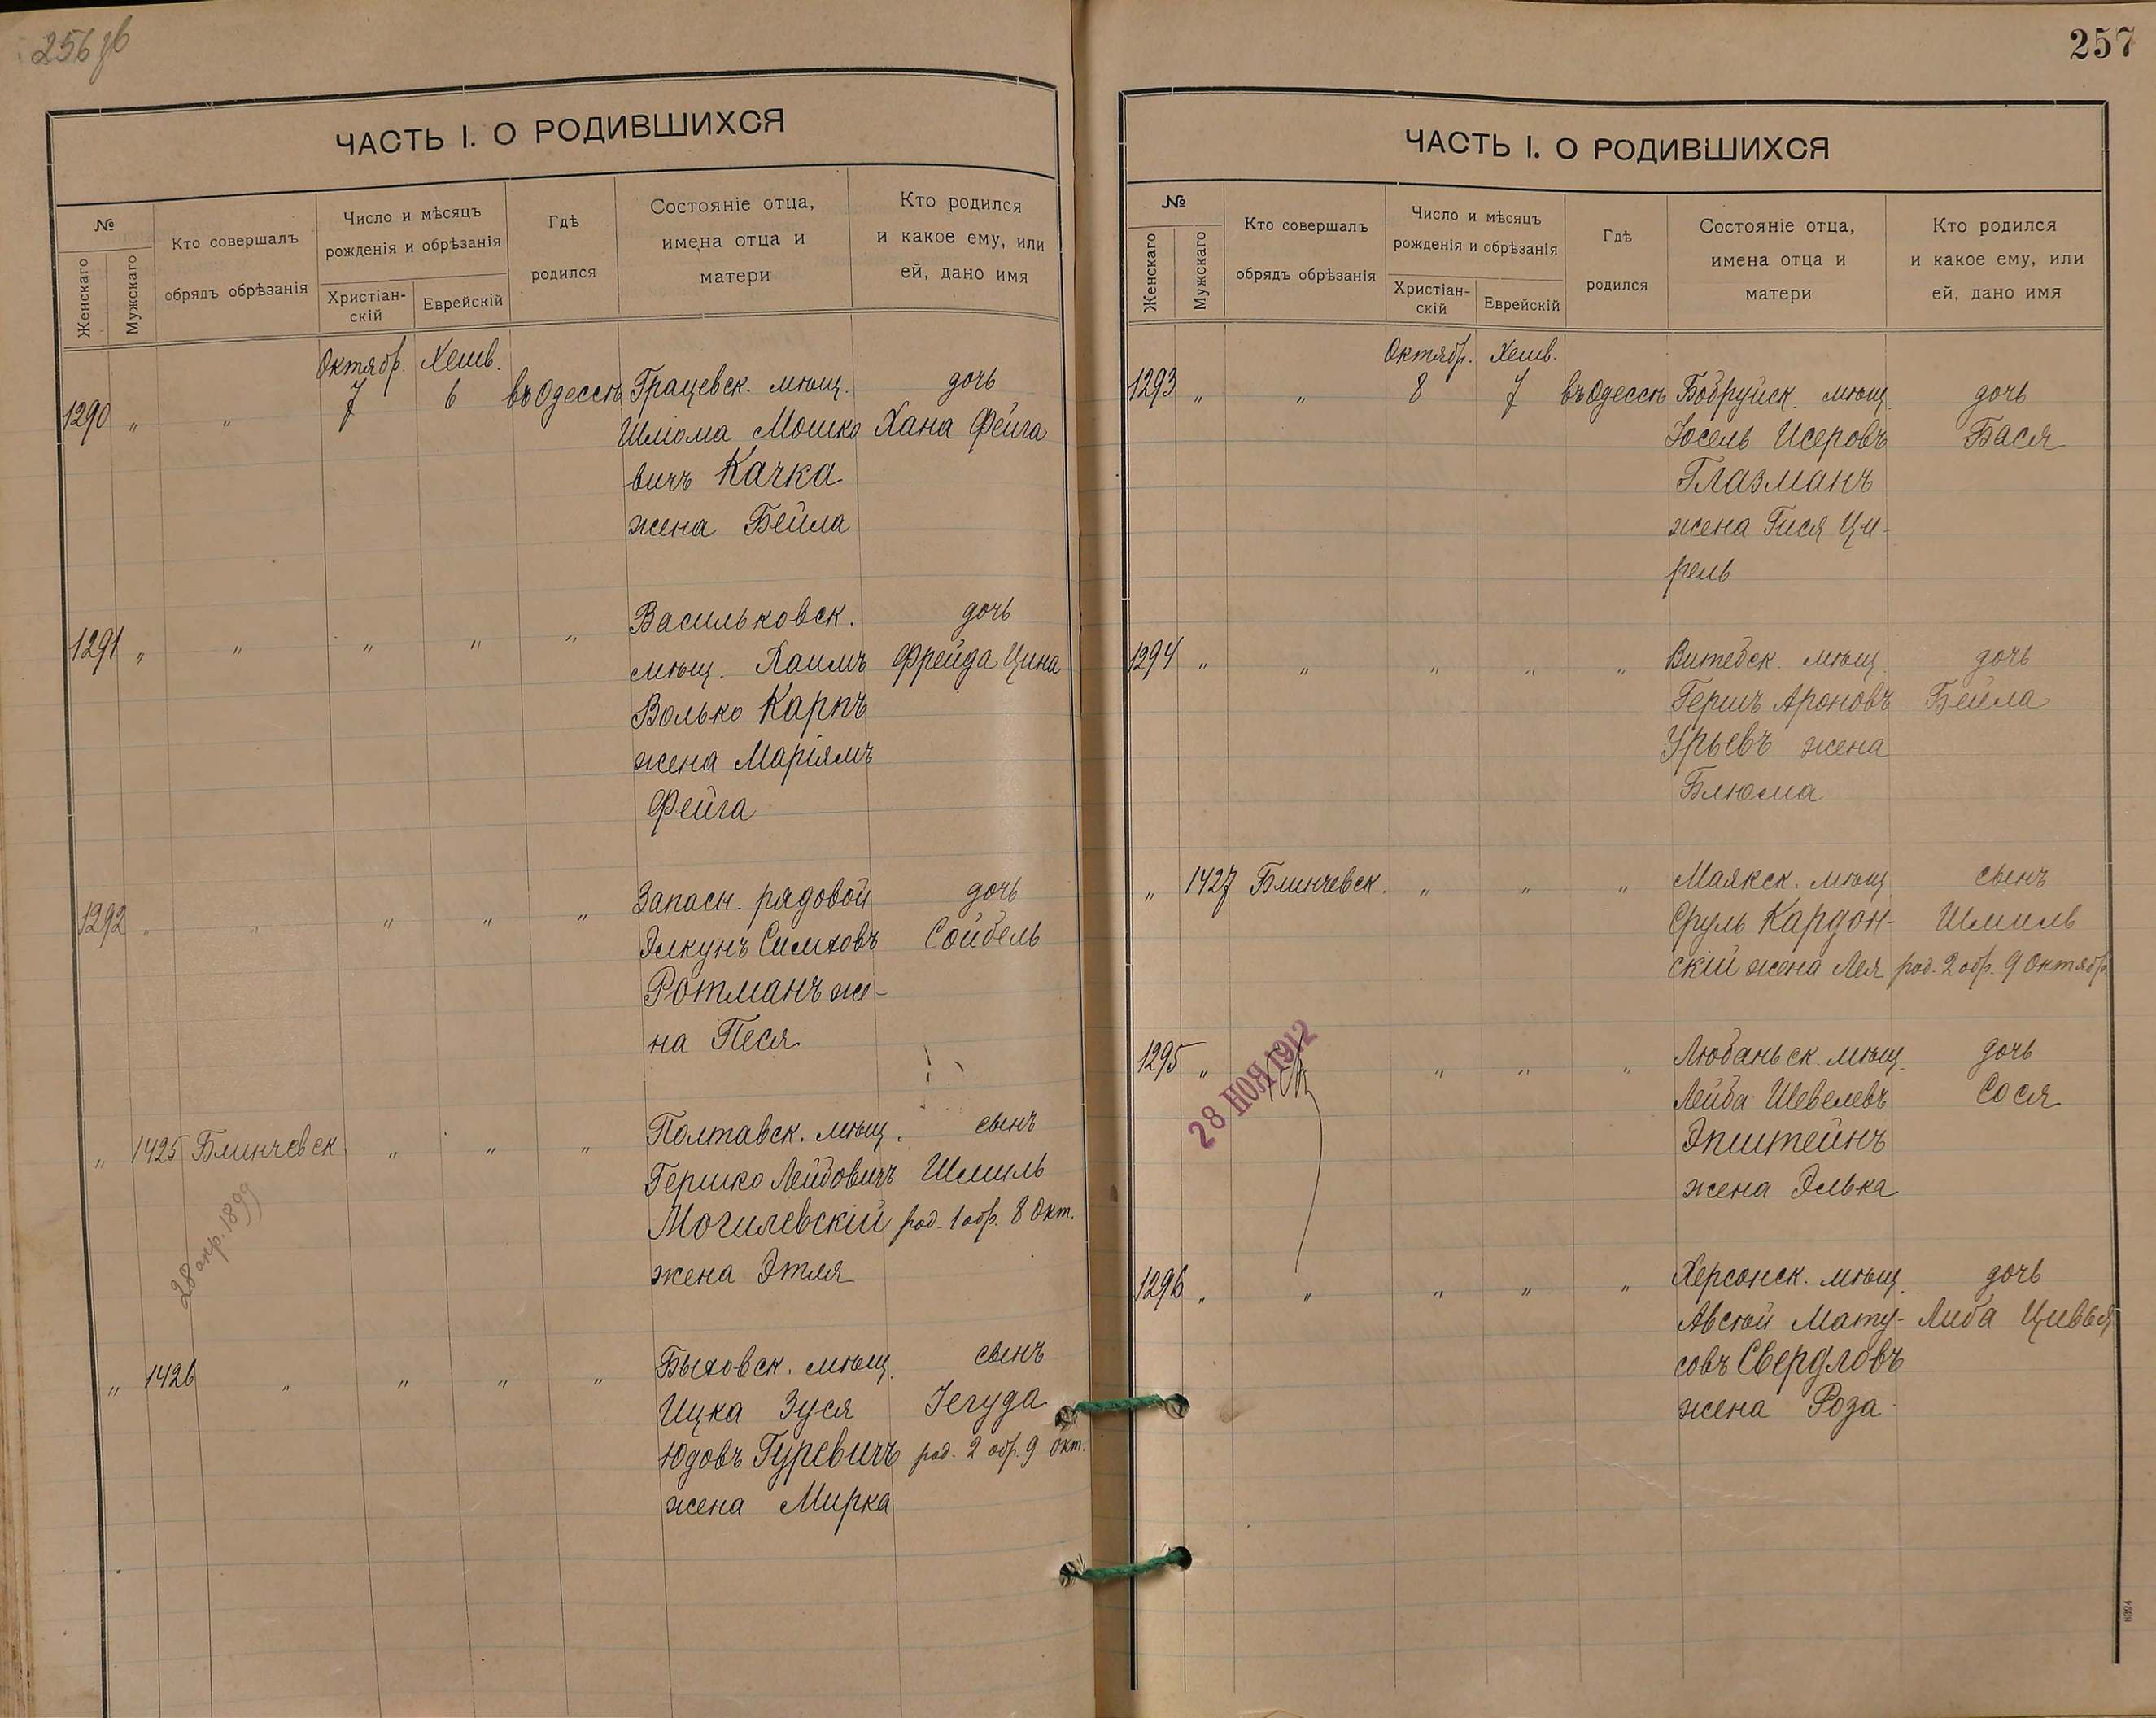 256 об
ЧАСТЬ I. О РОДИВШИХСЯ
№
Женскаго
Мужскаго
Кто совершалъ
обрядъ обрѣзанія
Число и мѣсяцъ
рожденія и обрѣзанія
Христіан-
скій
Еврейскій
Гдѣ
родился
Состояніе отца,
имена отца и
матери
Кто родился
и какое ему, или
ей, дано имя
Октябр. Хешв.
1290 „ „ 7 6 въ Одессѣ Грацевск. мѣщ. дочь
Шлома Мошко Хана Фейга
вичъ Качка
жена Бейла
1291 „ „ „ „ „ Васильковск. дочь
мѣщ. Хаимъ Фрейда Цина
Волько Карпъ
жена Маріямъ
Фейга
1292 „ „ „ „ „ Запасн. рядовой дочь
Элкунъ Симховъ Сойбель
Ротманъ же-
на Песя
„ 1425 Блинчевск „ „ „ Полтавск. мѣщ. сынъ
Гершко Лейбовичъ Шмиль
Могилевскій род. 1 обр. 8 Окт.
жена Этля
28 апр. 1899
„ 1426 „ „ „ „ Быховск. мѣщ. сынъ
Ицка Зуся Іегуда
Юдовъ Гуревичъ род. 2 обр. 9 Окт.
жена Мирка
257
ЧАСТЬ I. О РОДИВШИХСЯ
№
Женскаго
Мужскаго
Кто совершалъ
обрядъ обрѣзанія
Число и мѣсяцъ
рожденія и обрѣзанія
Христіан-
скій
Еврейскій
Гдѣ
родился
Состояніе отца,
имена отца и
матери
Кто родился
и какое ему, или
ей, дано имя
Октябр. Хешв.
1293 „ „ 8 7 въ Одессѣ Бобруйск. мѣщ. дочь
Іосель Исеровъ Бася
Глазманъ
жена Гися Ци-
рель
1294 „ „ „ „ „ Витебск. мѣщ. дочь
Гершъ Ароновъ Бейла
Урьевъ жена
Блюма
„ 1427 Блинчевск. „ „ „ Маякск. мѣщ. сынъ
Сруль Кардон- Шмиль
скій жена Лея род. 2 обр. 9 Октябр.
1295 „ „ „ „ Любаньск. мѣщ. дочь
28 НОЯ 1912
Лейба Шевелевъ Сося
Эпштейнъ
жена Элька
1296 „ „ „ „ „ Херсонск. мѣщ. дочь
Авсюй Мату- Либа Цивья
совъ Свердловъ
жена Роза
8394